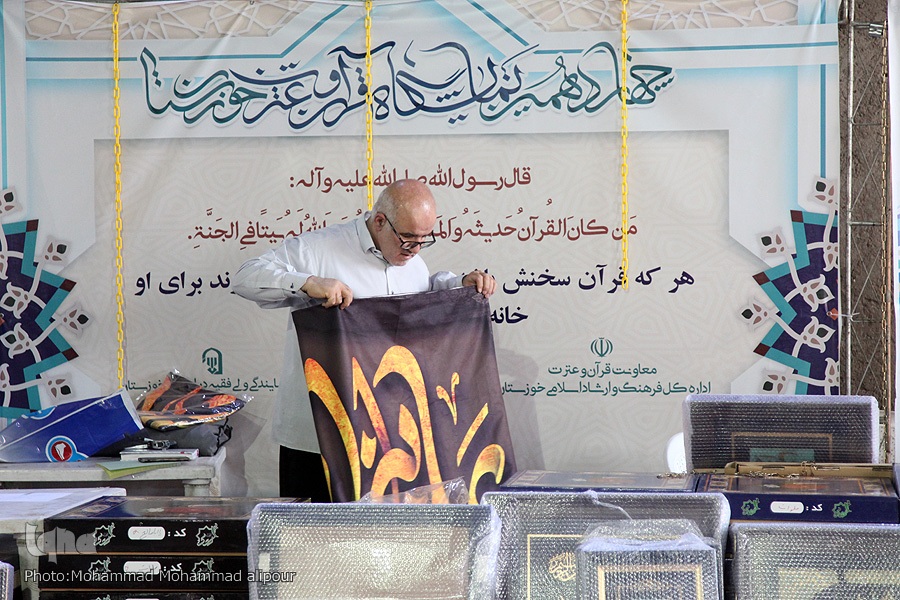 چهاردهمین نمایشگاه قرآن و عترت خوزستان
قال رسول الله صلی الله علیه و آله:
مَن كانَ القُرآنُ حَديثَهُ وَالمَ لَهُ بَيتاً فِي الجَنَّةِ.
هر که قرآن سخنش ند برای او
خانه
معاونت قرآن و عترت
اداره کل فرهنگ و ارشاد اسلامی خوزستان
نمایندگی ولی فقیه در خوزستان
کد :
کد :
کد :
iqna
Photo:Mohammad Mohammad alipour